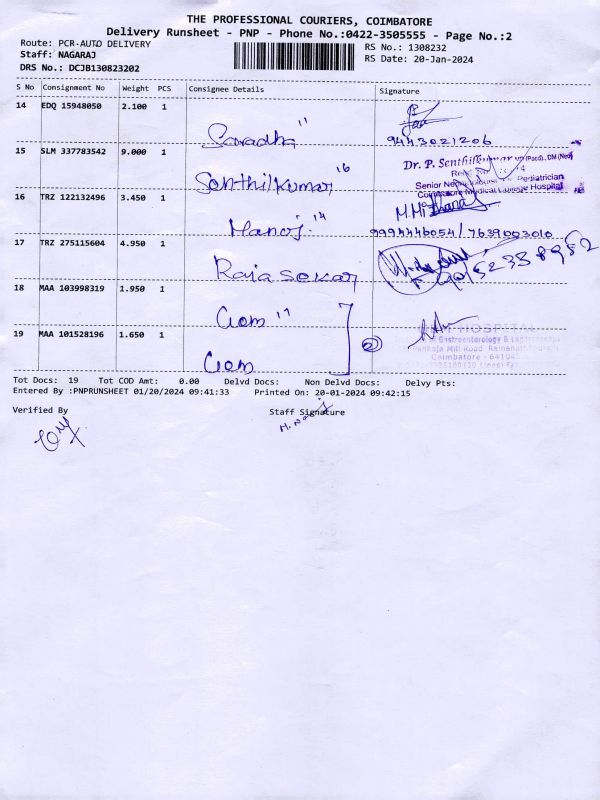 THE PROFESSIONAL COURIERS, COIMBATORE
Delivery Runsheet - PNP - Phone No.:0422-3505555 - Page No.:2
Route: PCR-AUTO DELIVERY
RS No.: 1308232
Staff: NAGARAJ
RS Date: 20-Jan-2024
DRS No.: DCJB130823202
S No Consignment No Weight PCS Consignee Details Signature
14 EDQ 15948050 2.100 1
Saradha "
9443021206
15 SLM 337783542 9.000 1
Dr. P. Senthilkumar
Senior Pediatrician
Coimbatore Medical College Hospital
Senthilkumar 16
16 TRZ 122132496 3.450 1
Manoj 14
9994446054/7639003010
17 TRZ 275115604 4.950 1
Rajasekar
18 MAA 103998319 1.950 1
Gem "
19 MAA 101528196 1.650 1
2
HOSPITAL
Gastroenterology &
Mill Road, Ramanathapuram
Coimbatore - 641045
Gem
Tot Docs: 19 Tot COD Amt: 0.00 Delvd Docs: Non Delvd Docs: Delvy Pts:
Entered By :PNPRUNSHEET 01/20/2024 09:41:33 Printed On: 20-01-2024 09:42:15
Verified By Staff Signature